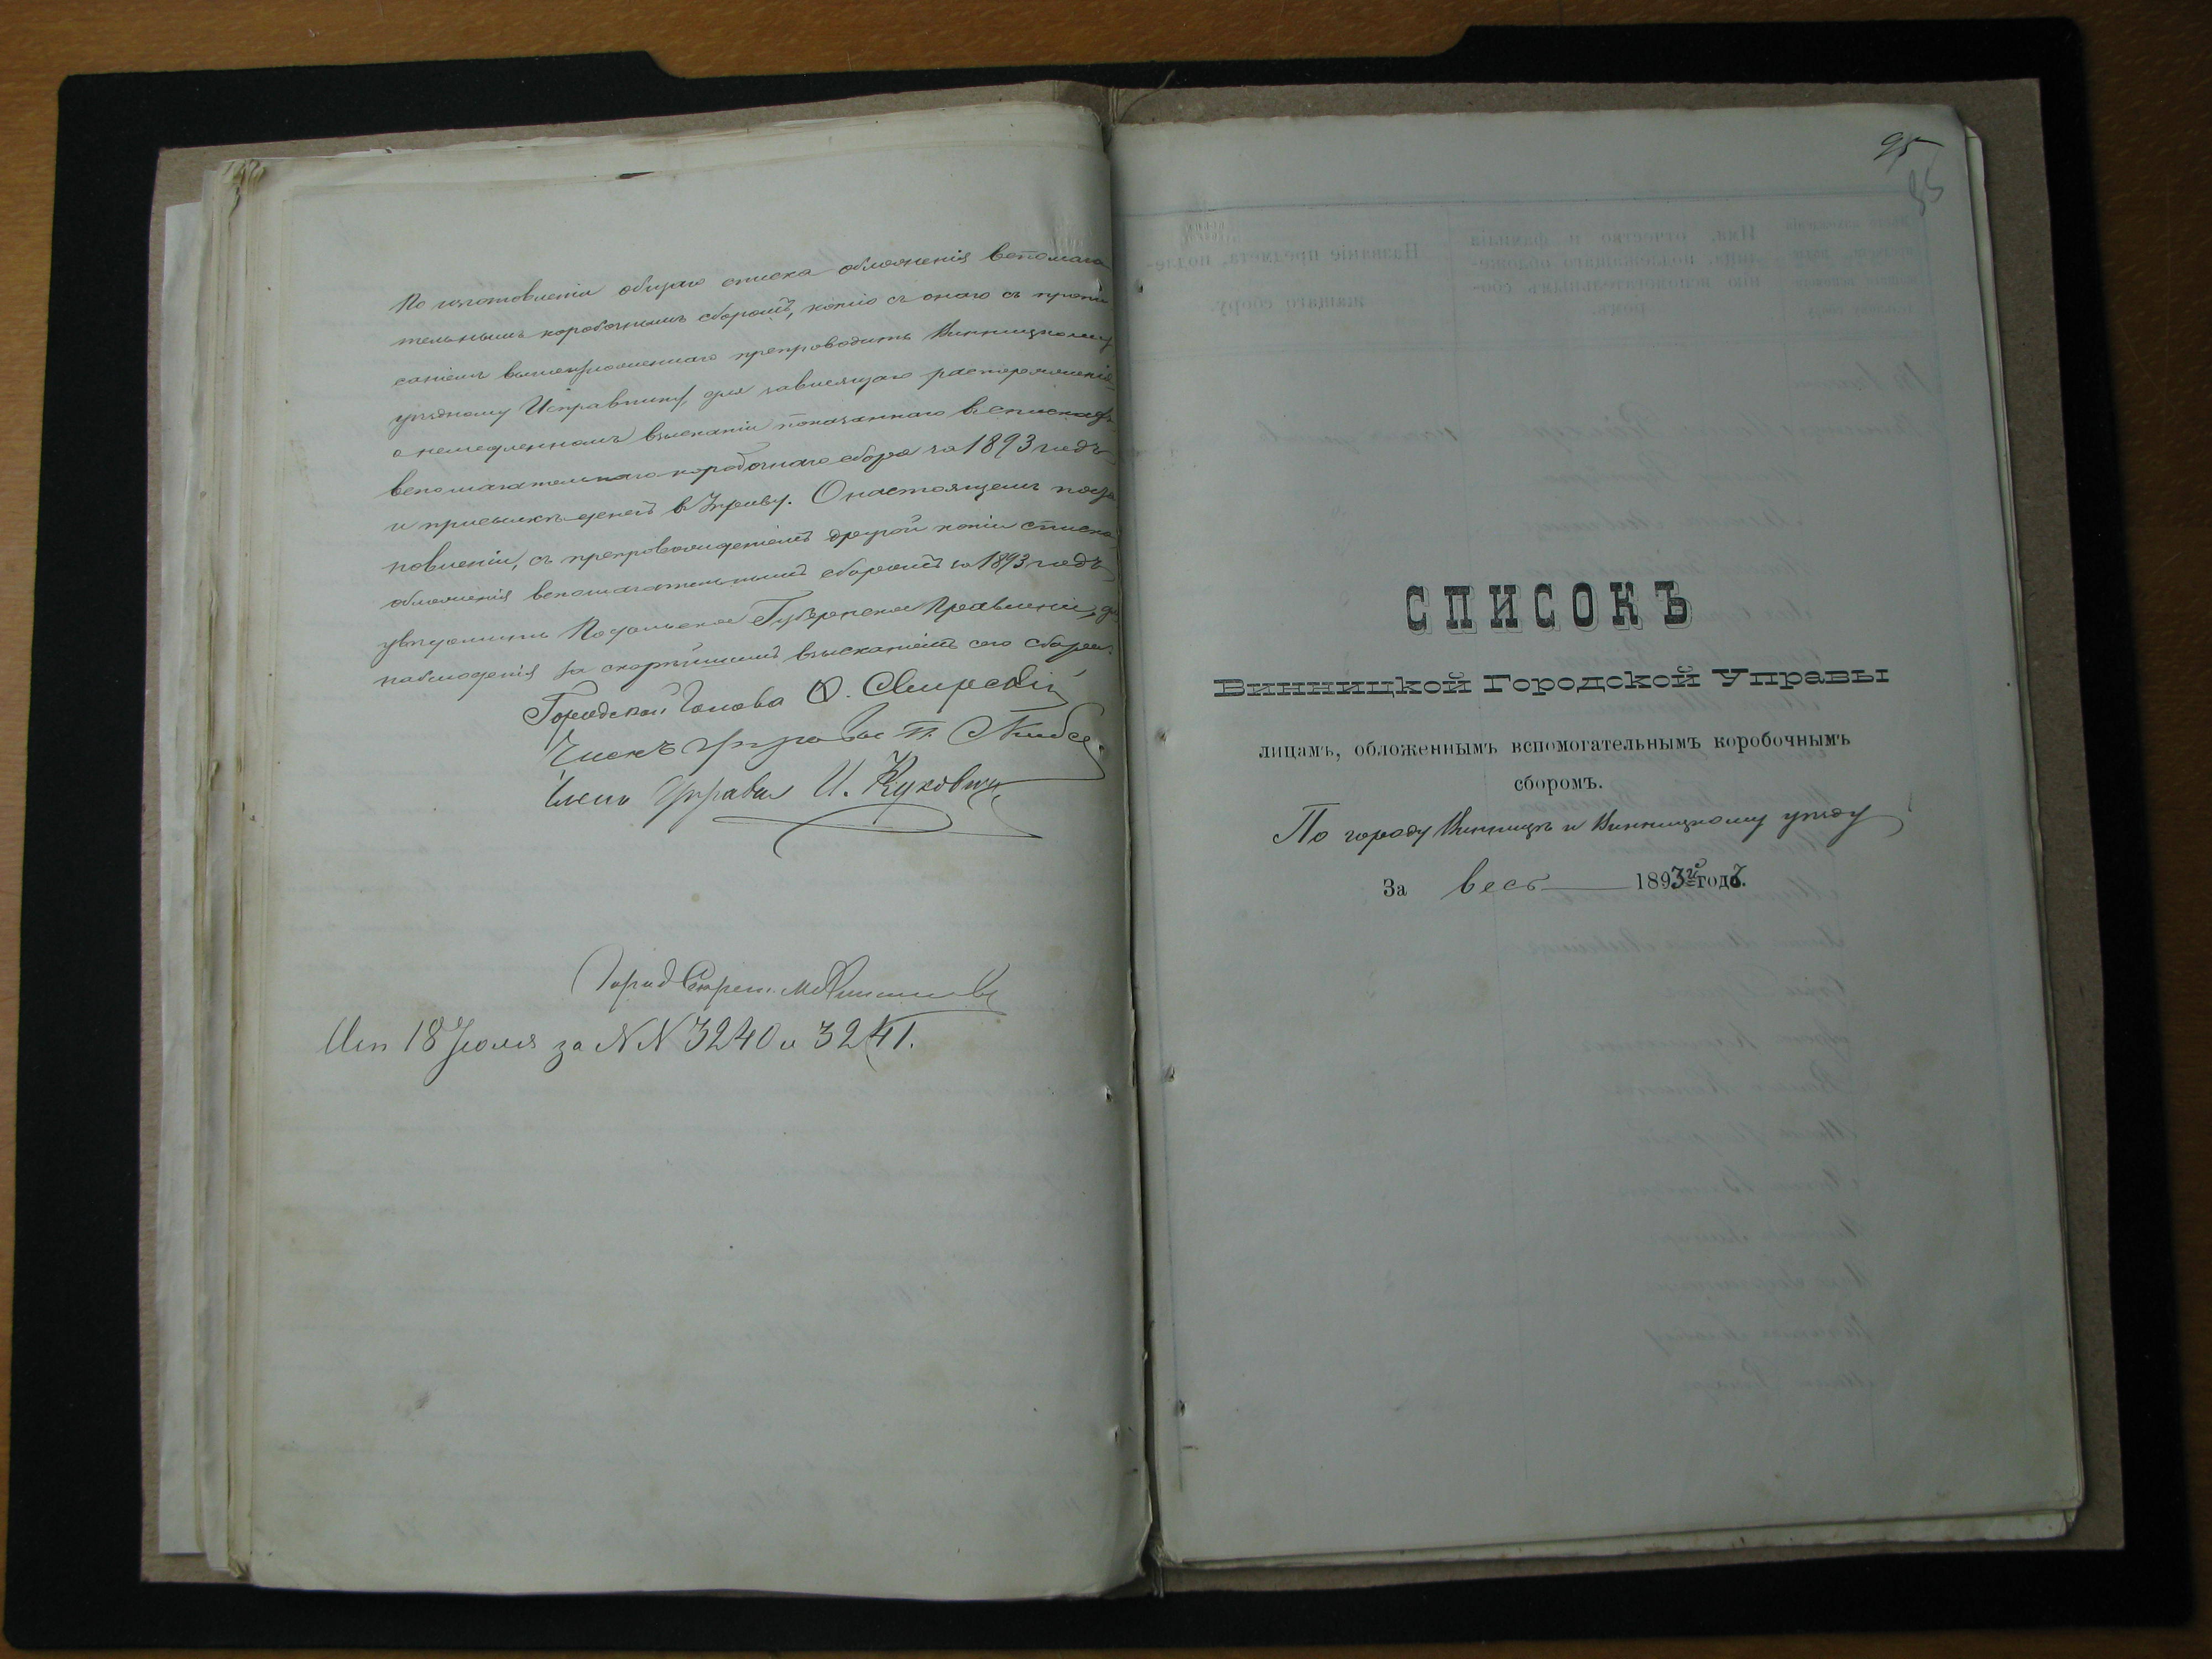 По изготовленіи общаго списка обложенія вспомога
тельнымъ коробочнымъ сборомъ, копію съ онаго съ пропи
саніемъ вышеизложеннаго препроводить Винницкому
уѣздному Исправнику, для зависящаго распоряженія
о немедленномъ взысканіи показаннаго въ спискахъ
вспомогательнаго коробочнаго сбора за 1893 годъ
и присылкѣ денегъ в Управу. О настоящемъ поста
новленіи, съ препровожденіемъ другой копіи списка
обложенія вспомогательнымъ сборомъ за 1893 годъ
увѣдомить Подольское Губернское Правленіе, для
наблюденія за скорѣйшимъ взысканіемъ сего сбора.
Городской Голова
Членъ Управы П.
Членъ Управы И.
Город Секрет.
Исп 18 Іюля за NN 3240 и 3241.
95
95
СПИСОКЪ
Винницкой Городской Управы
лицамъ, обложеннымъ вспомогательнымъ коробочнымъ
сборомъ.
По городу Винницѣ и Винницкому уѣзду
За весь 1893й годъ.